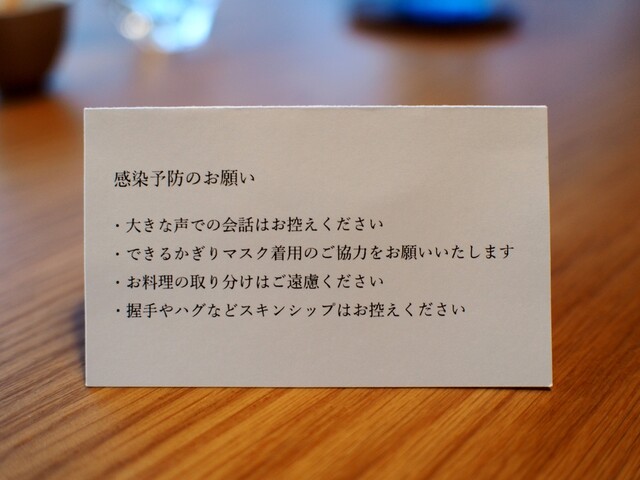 感染予防のお願い
・大きな声での会話はお控えください
・できるかぎりマスク着用のご協力をお願いいたします
・お料理の取り分けはご遠慮ください
・握手やハグなどスキンシップはお控えください